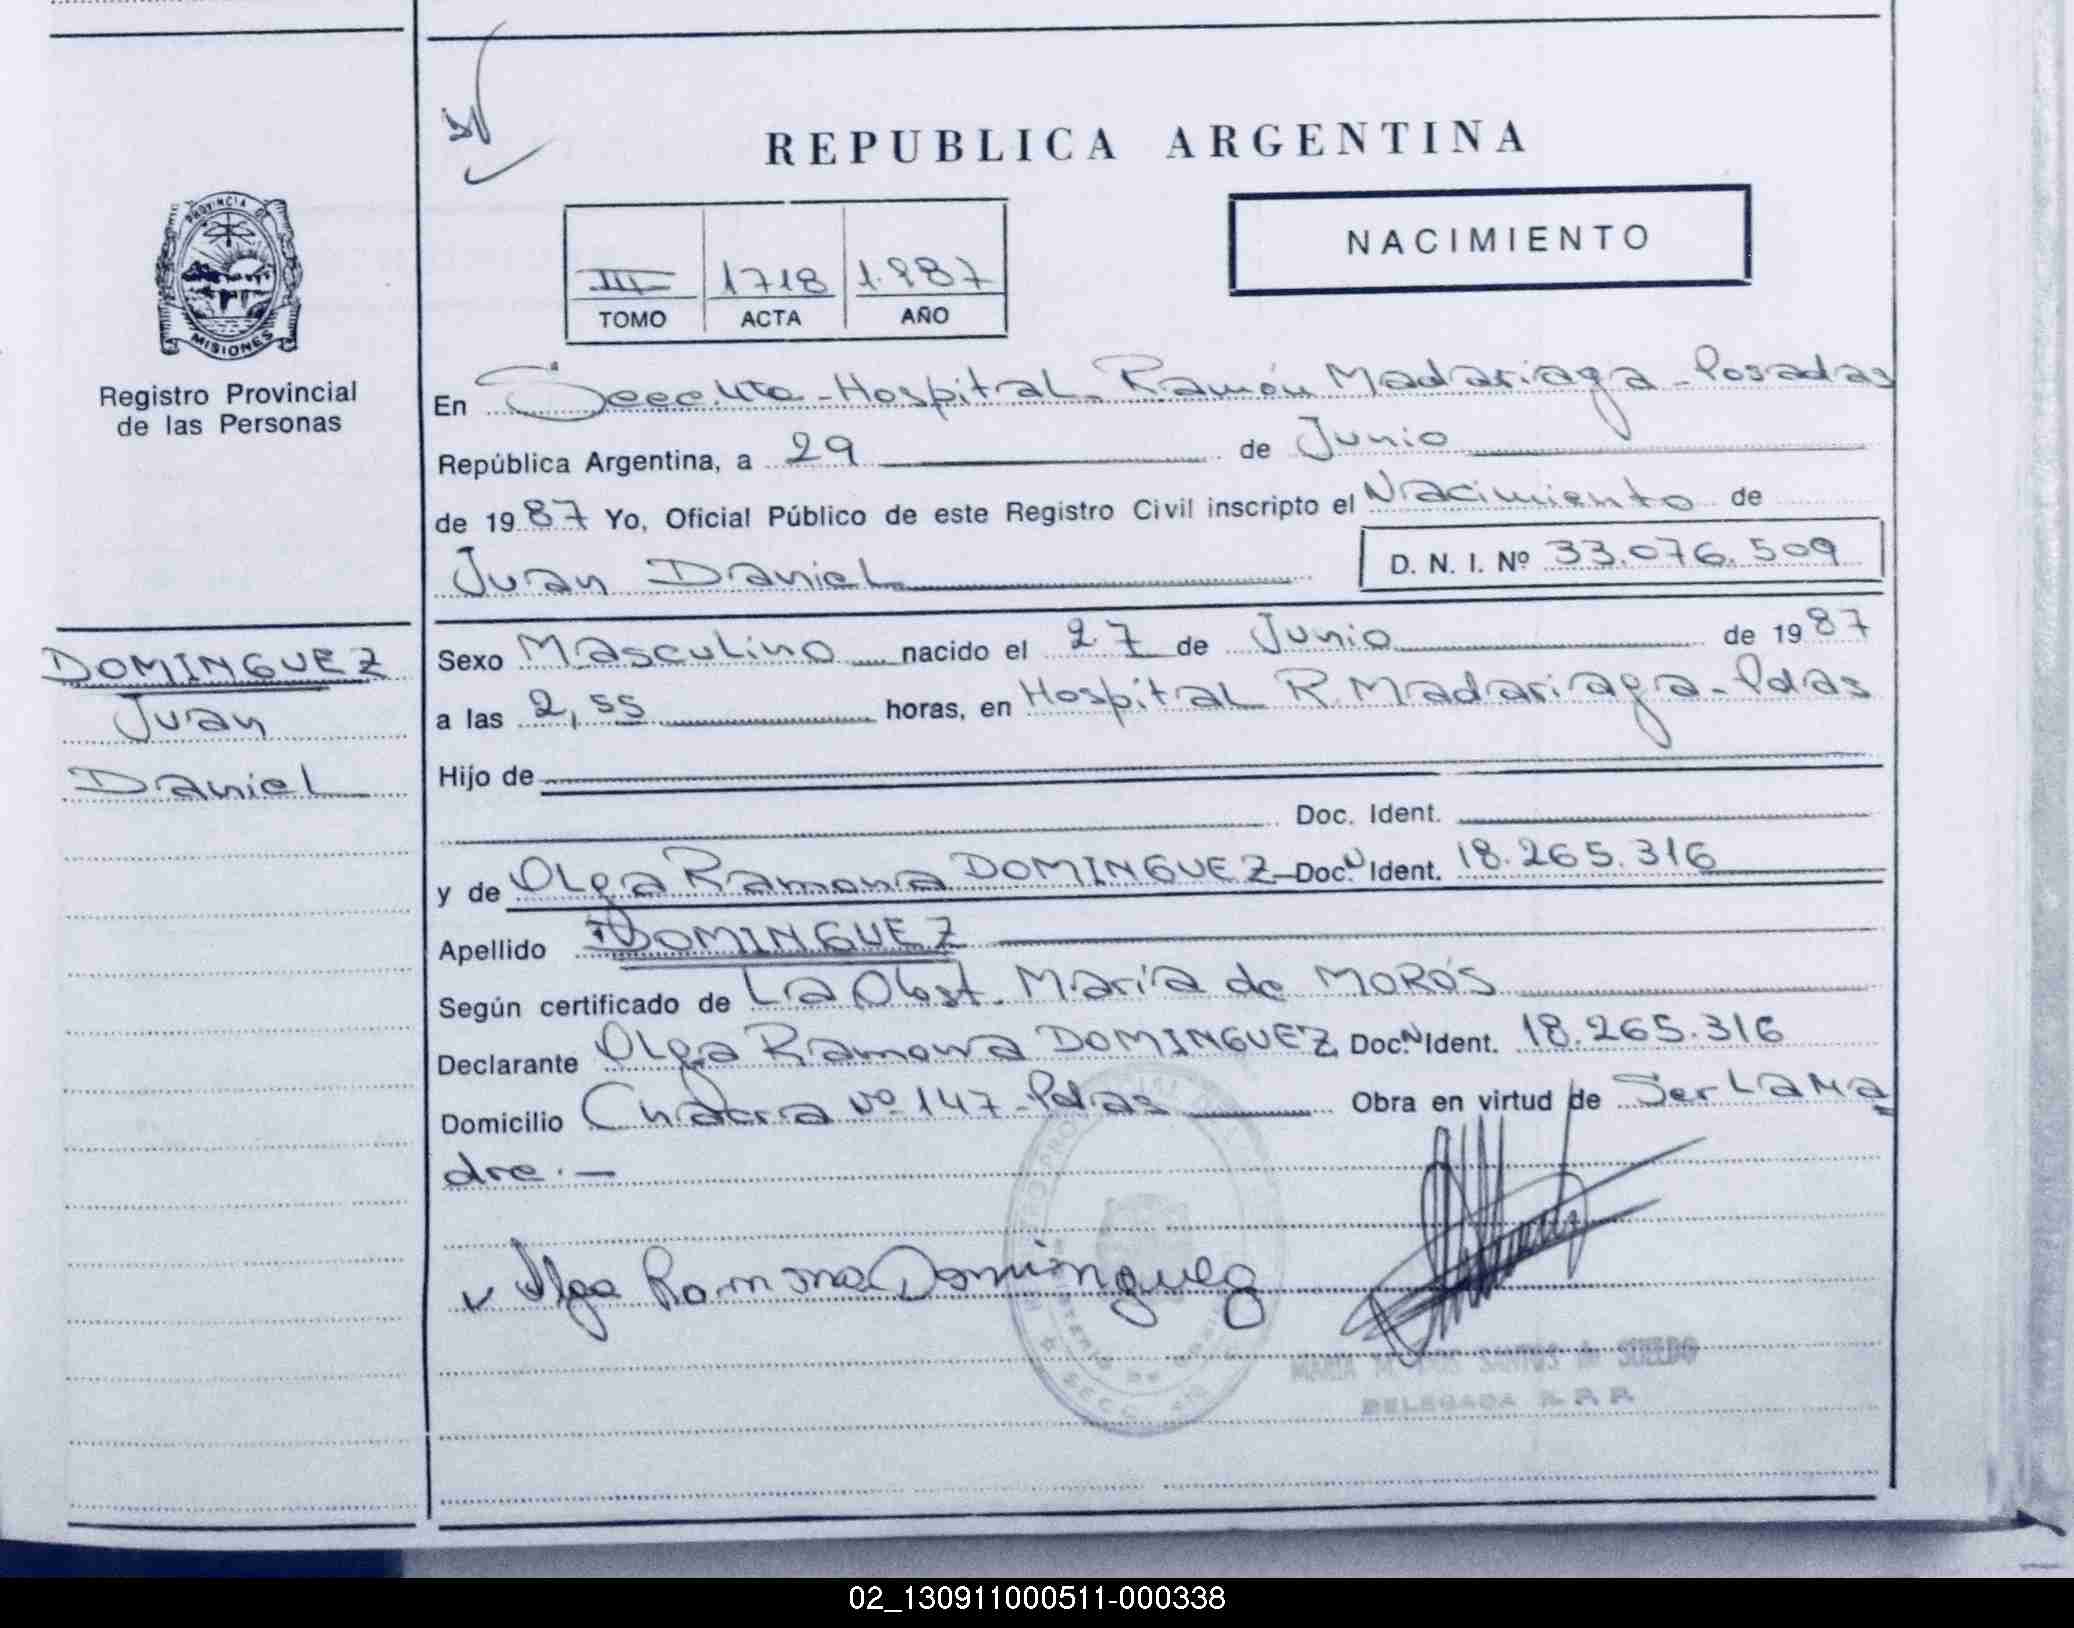 REPUBLICA ARGENTINA
NACIMIENTO
III 1718 1.987
TOMO ACTA AÑO
PROVINCIA DE
MISIONES
Registro Provincial
de las Personas
En Hospital Ramón Madariaga - Posadas
República Argentina, a 29 de Junio
de 1987 Yo, Oficial Público de este Registro Civil inscripto el Nacimiento de
Juan Daniel D. N. I. Nº 33.076.509
DOMINGUEZ
Juan
Daniel
Sexo Masculino nacido el 27 de Junio de 1987
a las 2,55 horas, en Hospital R. Madariaga - Pdas
Hijo de
Doc. Ident.
y de Olga Ramona DOMINGUEZ - Doc. N Ident. 18.265.316
Apellido DOMINGUEZ
Según certificado de La Obst. María de MORÓS
Declarante Olga Ramona DOMINGUEZ Doc. N Ident. 18.265.316
Domicilio Chacra Nº 147 - Pdas Obra en virtud de Ser La Ma
dre.-
Olga Ramona Dominguez
MARIA SANTOS de
DELEGADA R. P. P.
02_130911000511-000338